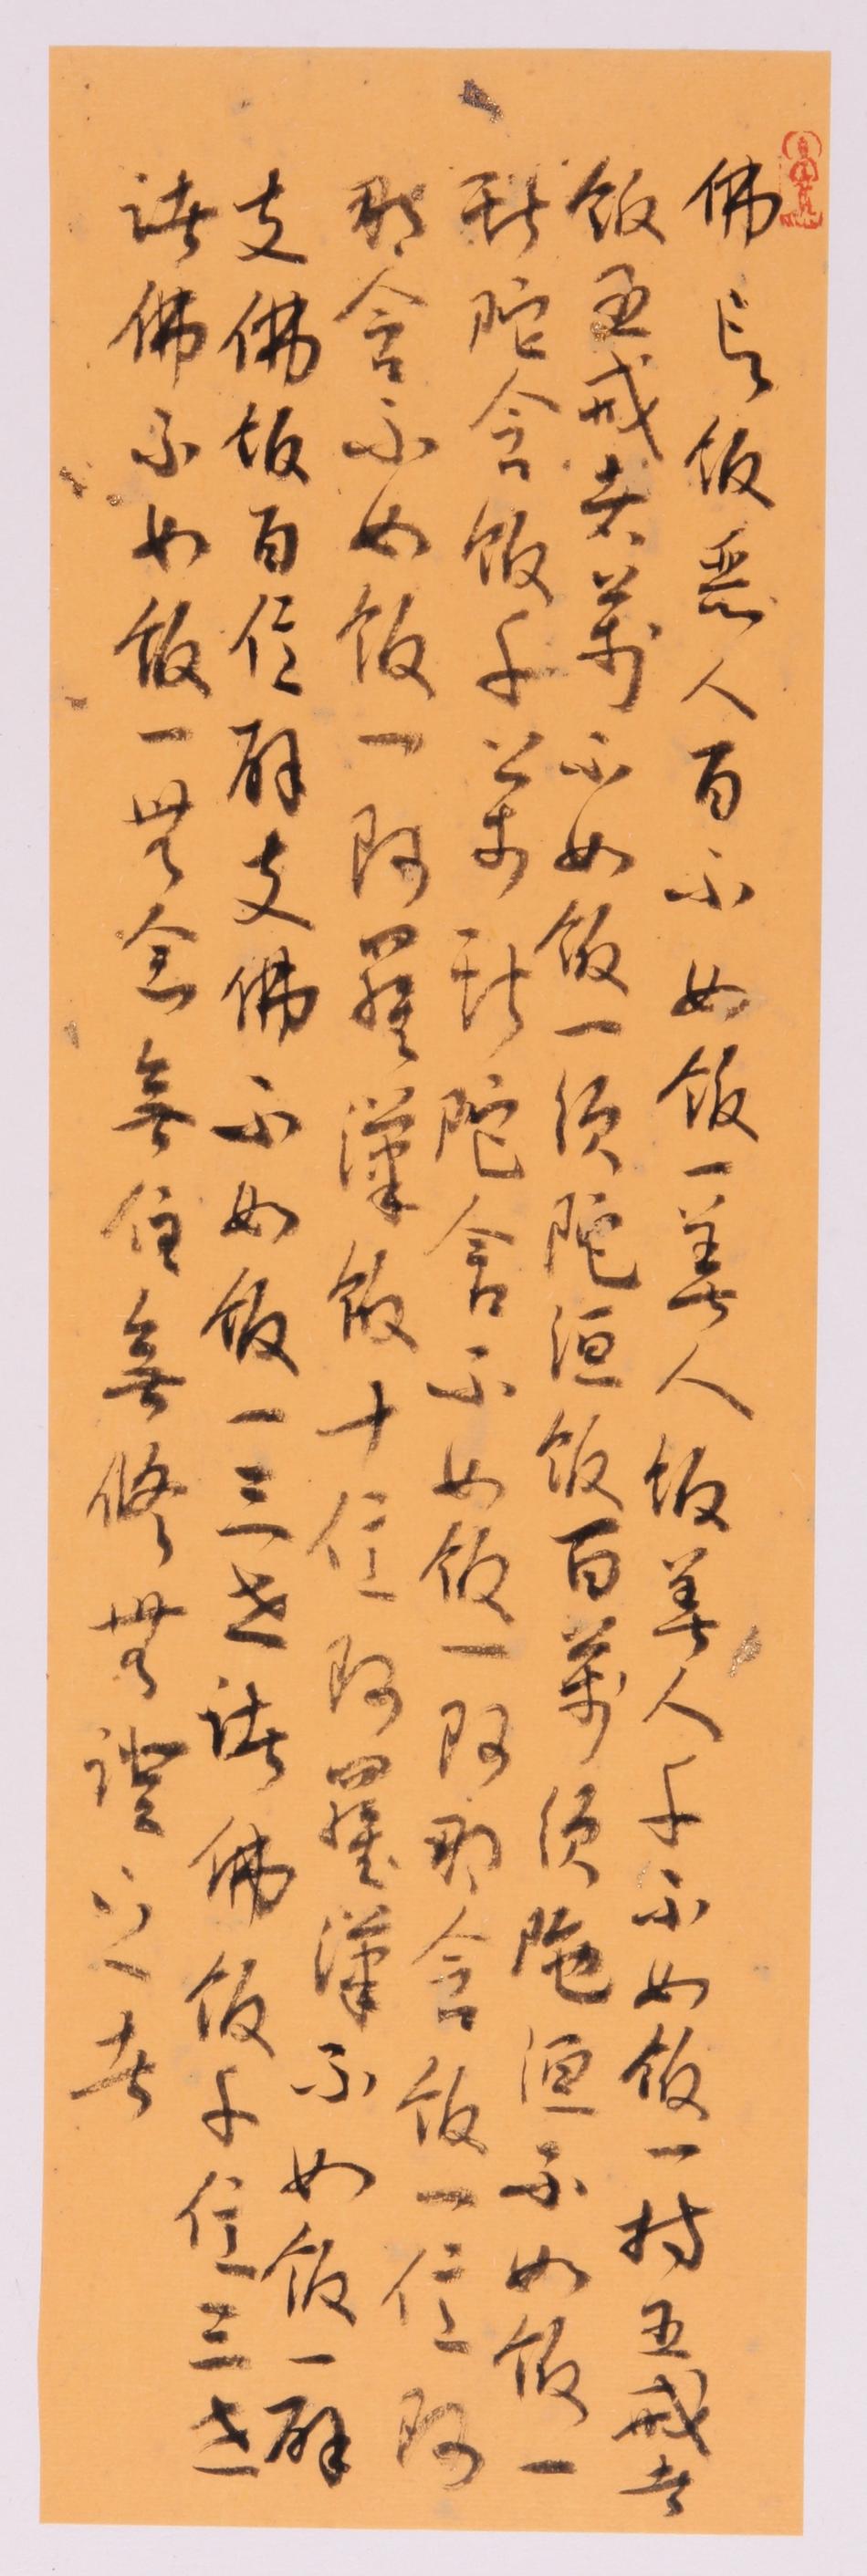 佛言飯惡人百不如飯一善人飯善人千不如飯一持五戒者
飯五戒者萬不如飯一須陀洹飯百萬須陀洹不如飯一
斯陀含飯千萬斯陀含不如飯一阿那含飯一億阿
那含不如飯一阿羅漢飯十億阿羅漢不如飯一辟
支佛飯百億辟支佛不如飯一三世諸佛飯千億三世
諸佛不如飯一無念無住無修無證之者